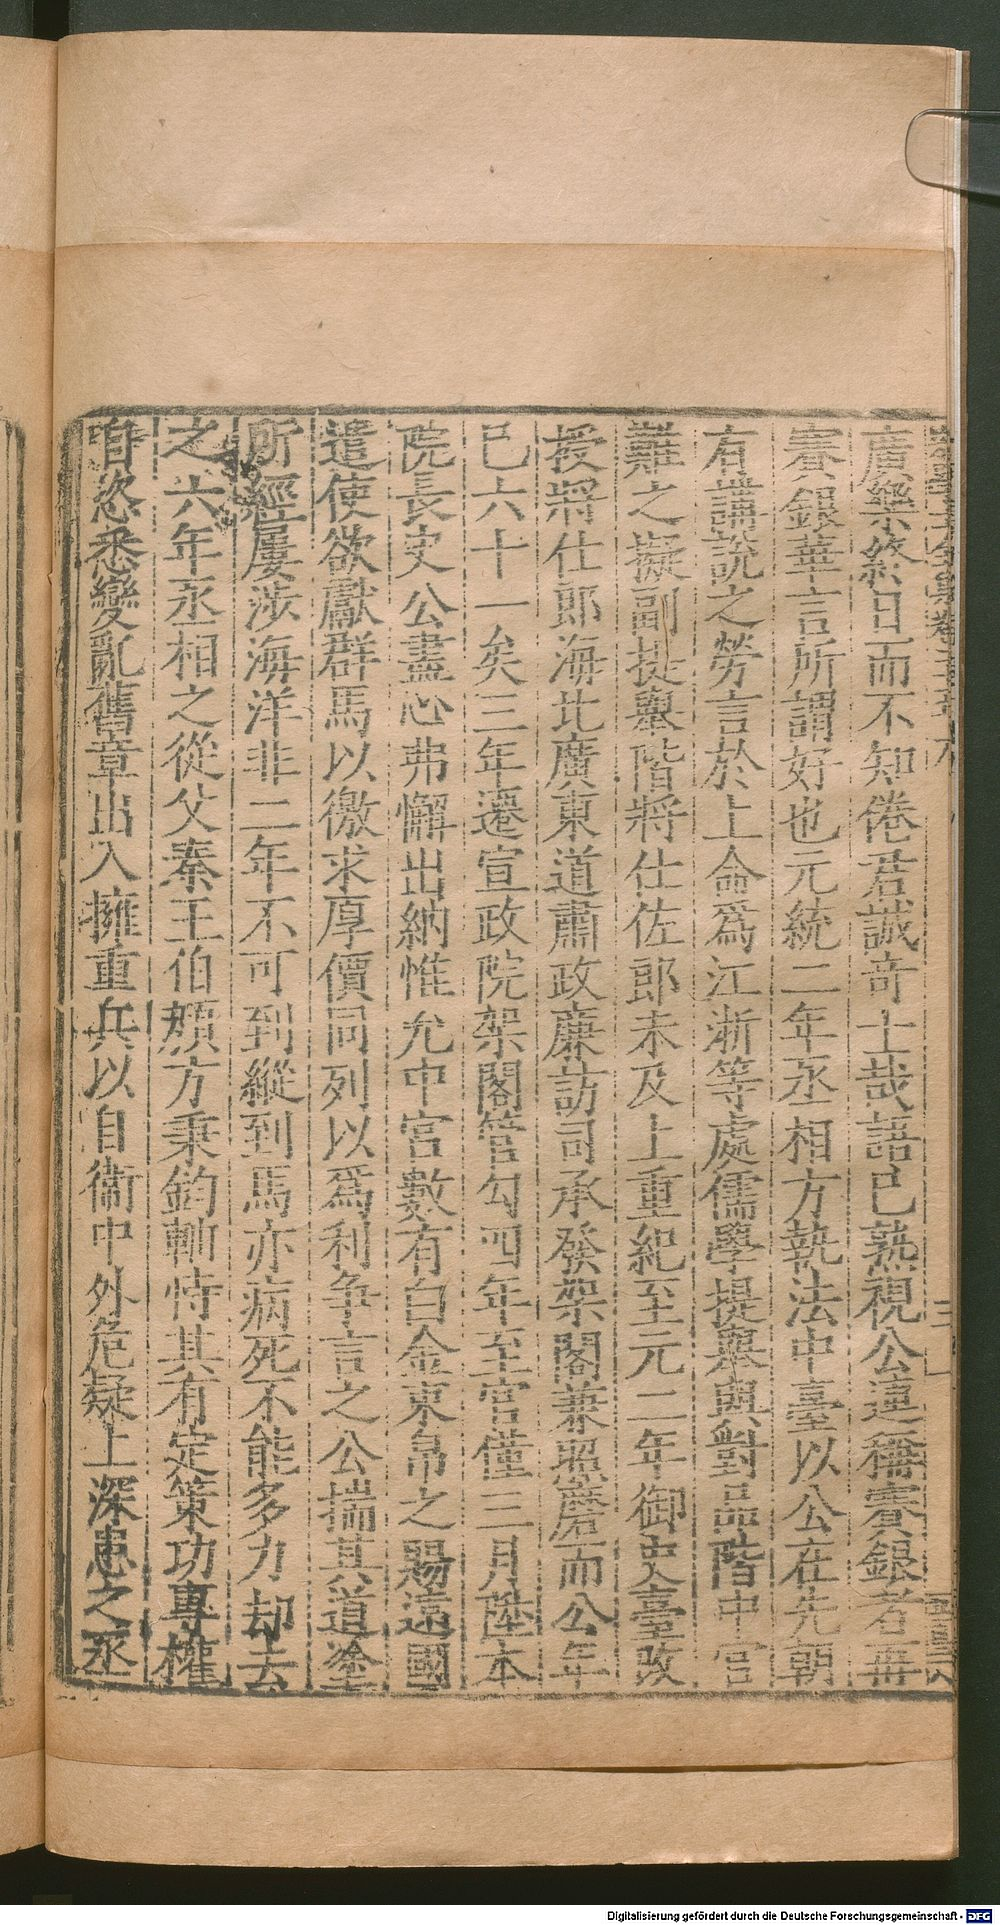 廣樂終日而不知倦君誠奇士哉語已熟視公連稱賽銀者再
賽銀華言所謂好也元統二年丞相方執法中臺以公在先朝
有講說之勞言於上命爲江浙等處儒學提舉與對品階中官
難之擬副提舉階將仕佐郎未及上重紀至元二年御史臺改
授將仕郎海北廣東道肅政廉訪司承發架閣兼照磨而公年
已六十一矣三年遷宣政院架閣管勾四年至官僅三月陞本
院長史公盡心弗懈出納惟允中宮數有白金束帛之賜遠國
遣使欲獻群馬以徼求厚價同列以爲利爭言之公揣其道塗
所經屢涉海洋非二年不可到縱到馬亦病死不能多力却去
之六年丞相之從父秦王伯顏方秉鈞軸恃其有定策功專權
自恣悉變亂舊章出入擁重兵以自衞中外危疑上深患之丞
Digitalisierung gefördert durch die Deutsche Forschungsgemeinschaft - DFG